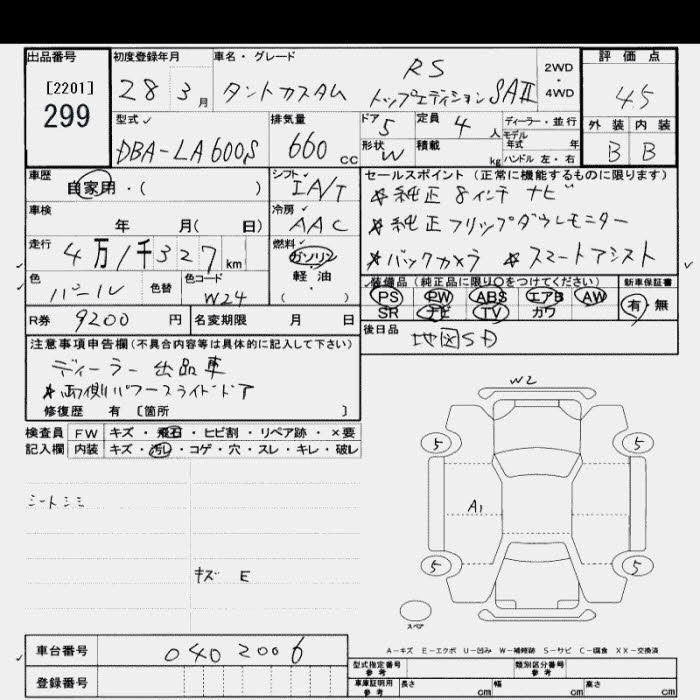 出品番号 初度登録年月 車名・グレード 評価点
[2201]
299
28 3月 タントカスタム RS トップエディションSAⅡ 2WD・4WD 4.5
型式 排気量 ドア 定員 ディーラー・並行 外装 内装
DBA-LA600S 660cc 5 4人 モデル年式 年 B B
形状 W 積載 kg ハンドル 左・右
車歴 シフト セールスポイント(正常に機能するものに限ります)
自家用・( ) IA/T ※純正8インチナビ
車検 冷房 ※純正フリップダウンモニター
年 月( 日) AAC
走行 燃料 ※バックカメラ ※スマートアシスト
4万1千327km ガソリン・軽油・( )
色 色替 色コード 装備品(純正品に限り○をつけてください) 新車保証書
パール W24 PS PW ABS エアB AW 有・無
SR ナビ TV カワ
R券 9200円 名変期限 月 日 後日品 地図SD
注意事項申告欄(不具合内容等は具体的に記入して下さい)
ディーラー出品車
※両側パワースライドドア
修復歴 有 [箇所 ]
検査員 FW キズ・飛石・ヒビ割・リペア跡・×要
記入欄 内装 キズ・汚れ・コゲ・穴・スレ・キレ・破レ
W2
5 5
シートシミ A1
5 5
キズ E
スペア
A-キズ E-エクボ U-凹み W-補修跡 S-サビ C-腐食 XX-交換済
車台番号 0402006
型式指定番号 参考 類別区分番号 参考
登録番号 車庫証明用 参考 長さ cm 幅 cm 高さ cm